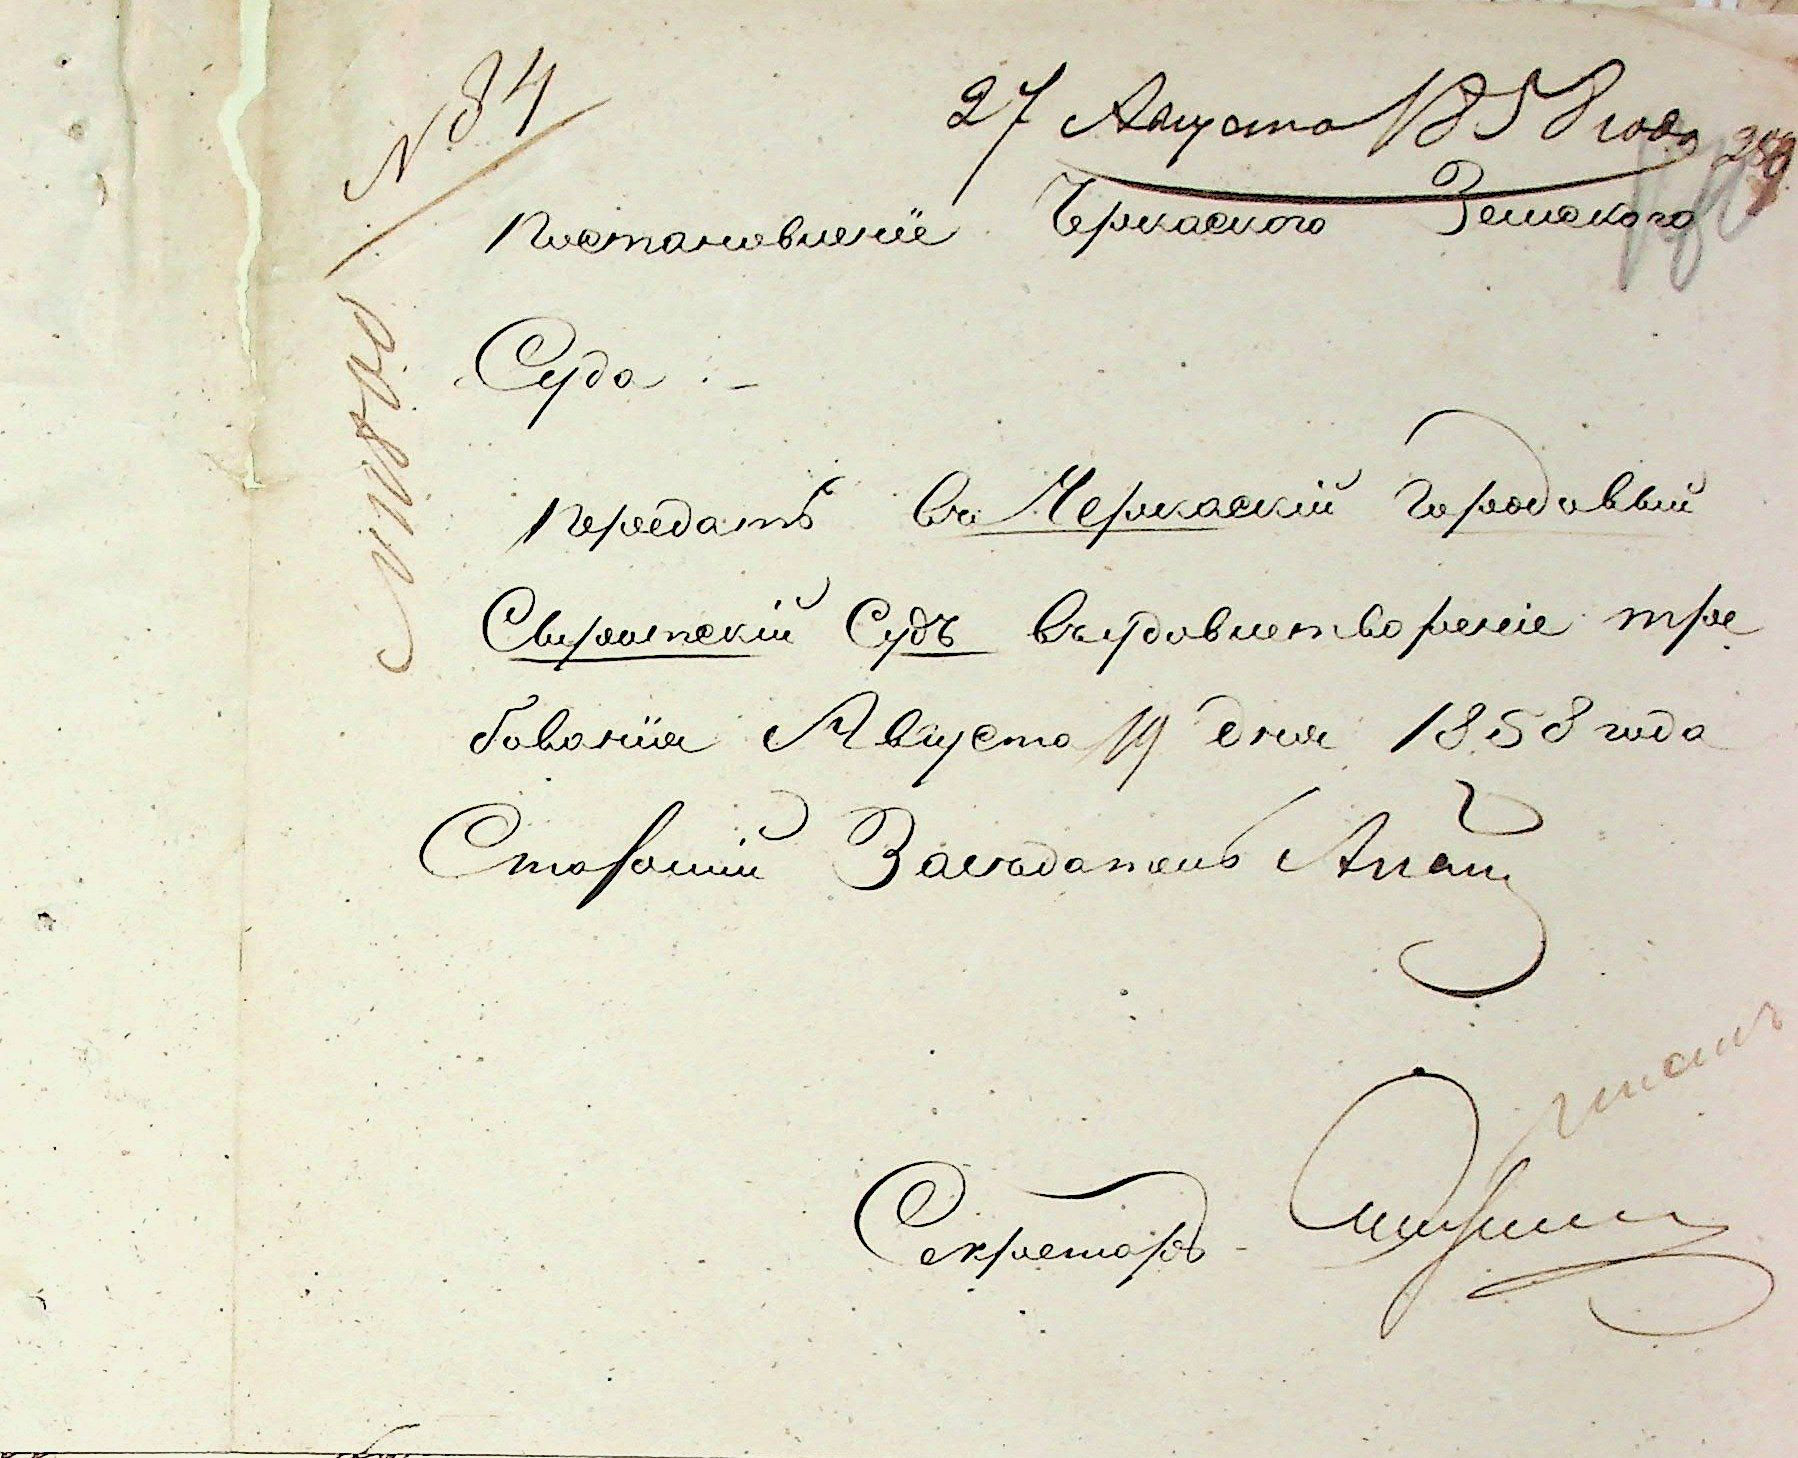 № 84
27 Августа 1858 года
Постановленіе Черкаского Земского
Суда :-
Передать въ Черкаскій Городовый
Сыротскій Судъ въ удовлетвореніе тре
бованія Августа 19 дня 1858 года
Старшій Засѣдатель
Секретарь